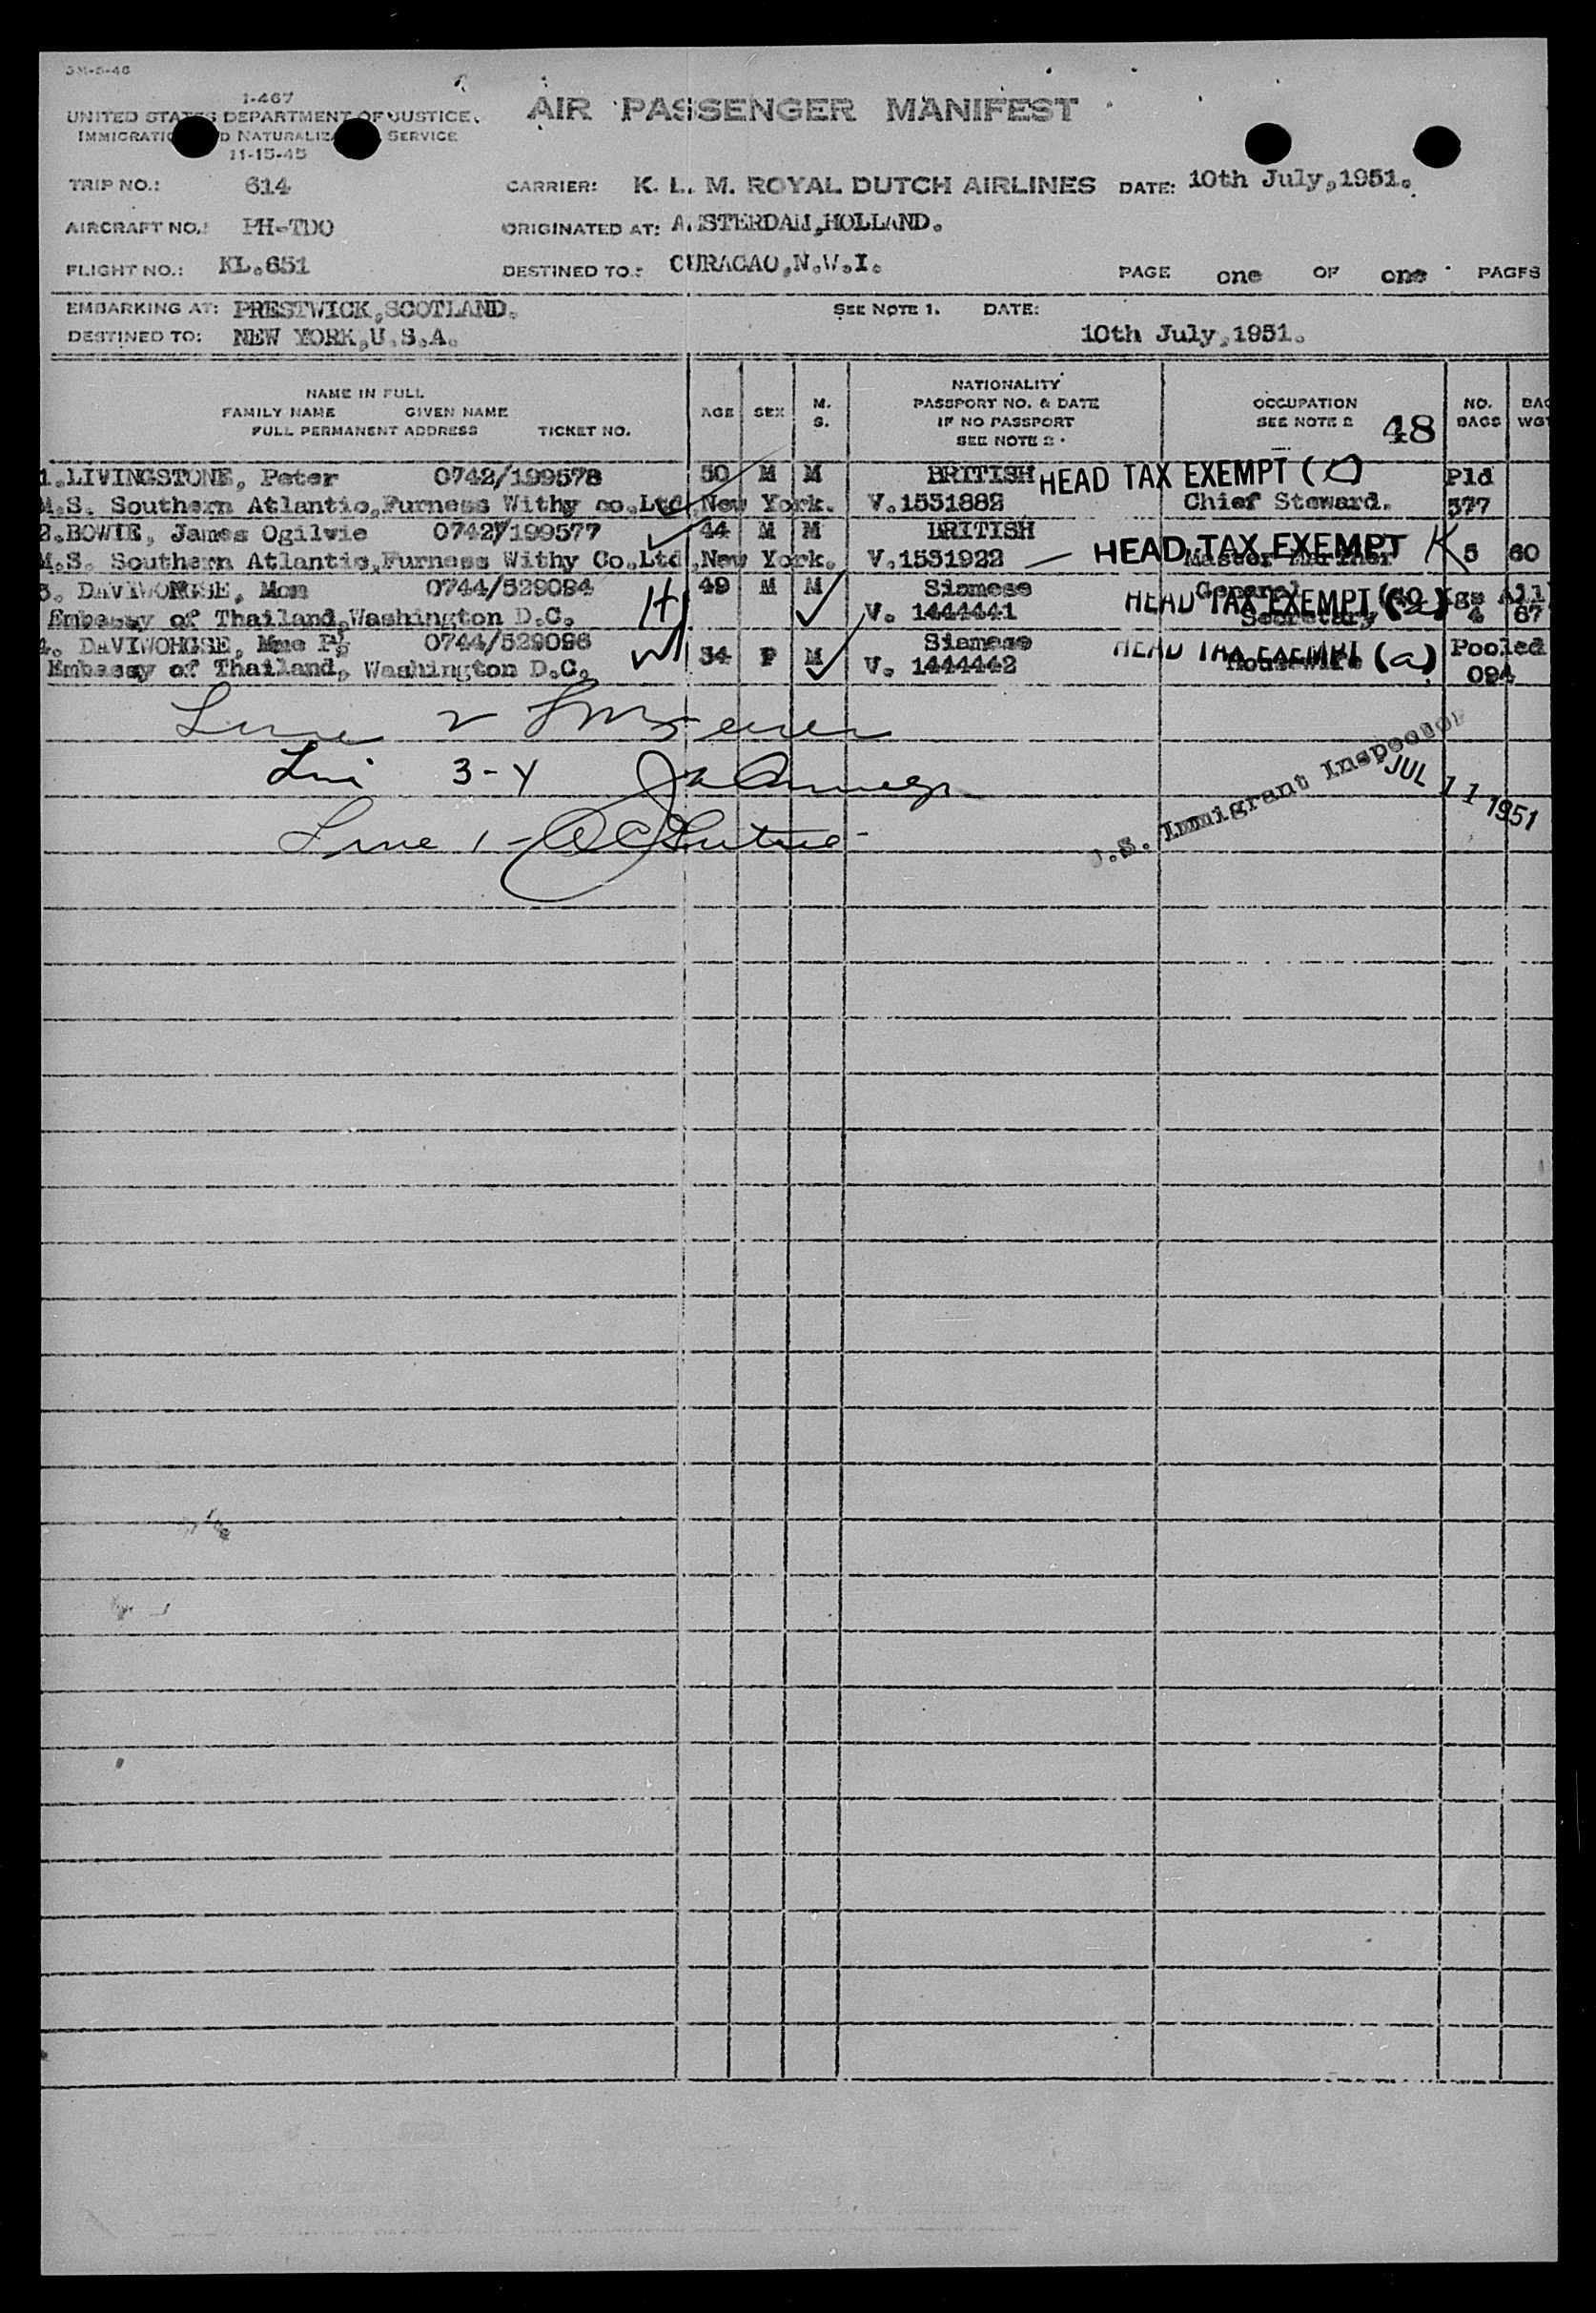 I-467
UNITED STATES DEPARTMENT OF JUSTICE.
IMMIGRATION AND NATURALIZATION SERVICE
11-15-45
AIR PASSENGER MANIFEST
TRIP NO.: 614 CARRIER: K. L. M. ROYAL DUTCH AIRLINES DATE: 10th July,1951.
AIRCRAFT NO.: PH-TDO ORIGINATED AT: AMSTERDAM,HOLLAND.
FLIGHT NO.: KL.651 DESTINED TO.: CURACAO,N.W.I. PAGE one OF one PAGES
EMBARKING AT: PRESTWICK,SCOTLAND. SEE NOTE 1. DATE:
DESTINED TO: NEW YORK,U.S.A. 10th July,1951.
NAME IN FULL
FAMILY NAME GIVEN NAME
FULL PERMANENT ADDRESS TICKET NO.
AGE SEX M. S.
NATIONALITY
PASSPORT NO. & DATE
IF NO PASSPORT
SEE NOTE 2
OCCUPATION
SEE NOTE 2 48
NO. BAGS
BAG WGT
1.LIVINGSTONE, Peter 0742/199578 50 M M BRITISH HEAD TAX EXEMPT Pld
M.S. Southern Atlantic,Furness Withy co.Ltd,New York. V.1551882 Chief Steward. 577
2.BOWIE, James Ogilvie 0742/199577 44 M M BRITISH
M.S. Southern Atlantic,Furness Withy Co.Ltd,New York. V.1551922 HEAD TAX EXEMPT Master Mariner 5 60
3. DAVIWONGSE, Mom 0744/529094 49 M M Siamese General Kgs All
Embassy of Thailand,Washington D.C. V. 1444441 HEAD TAX EXEMPT (a) Secretary 4 67
4. DAVIWONGSE, Mme P. 0744/529096 34 F M Siamese HEAD TAX EXEMPT (a) Pooled
Embassy of Thailand, Washington D.C. V. 1444442 Housewife 094
Line 2
Line 3-4
Line 1
U.S. Immigrant Inspector
JUL 11 1951